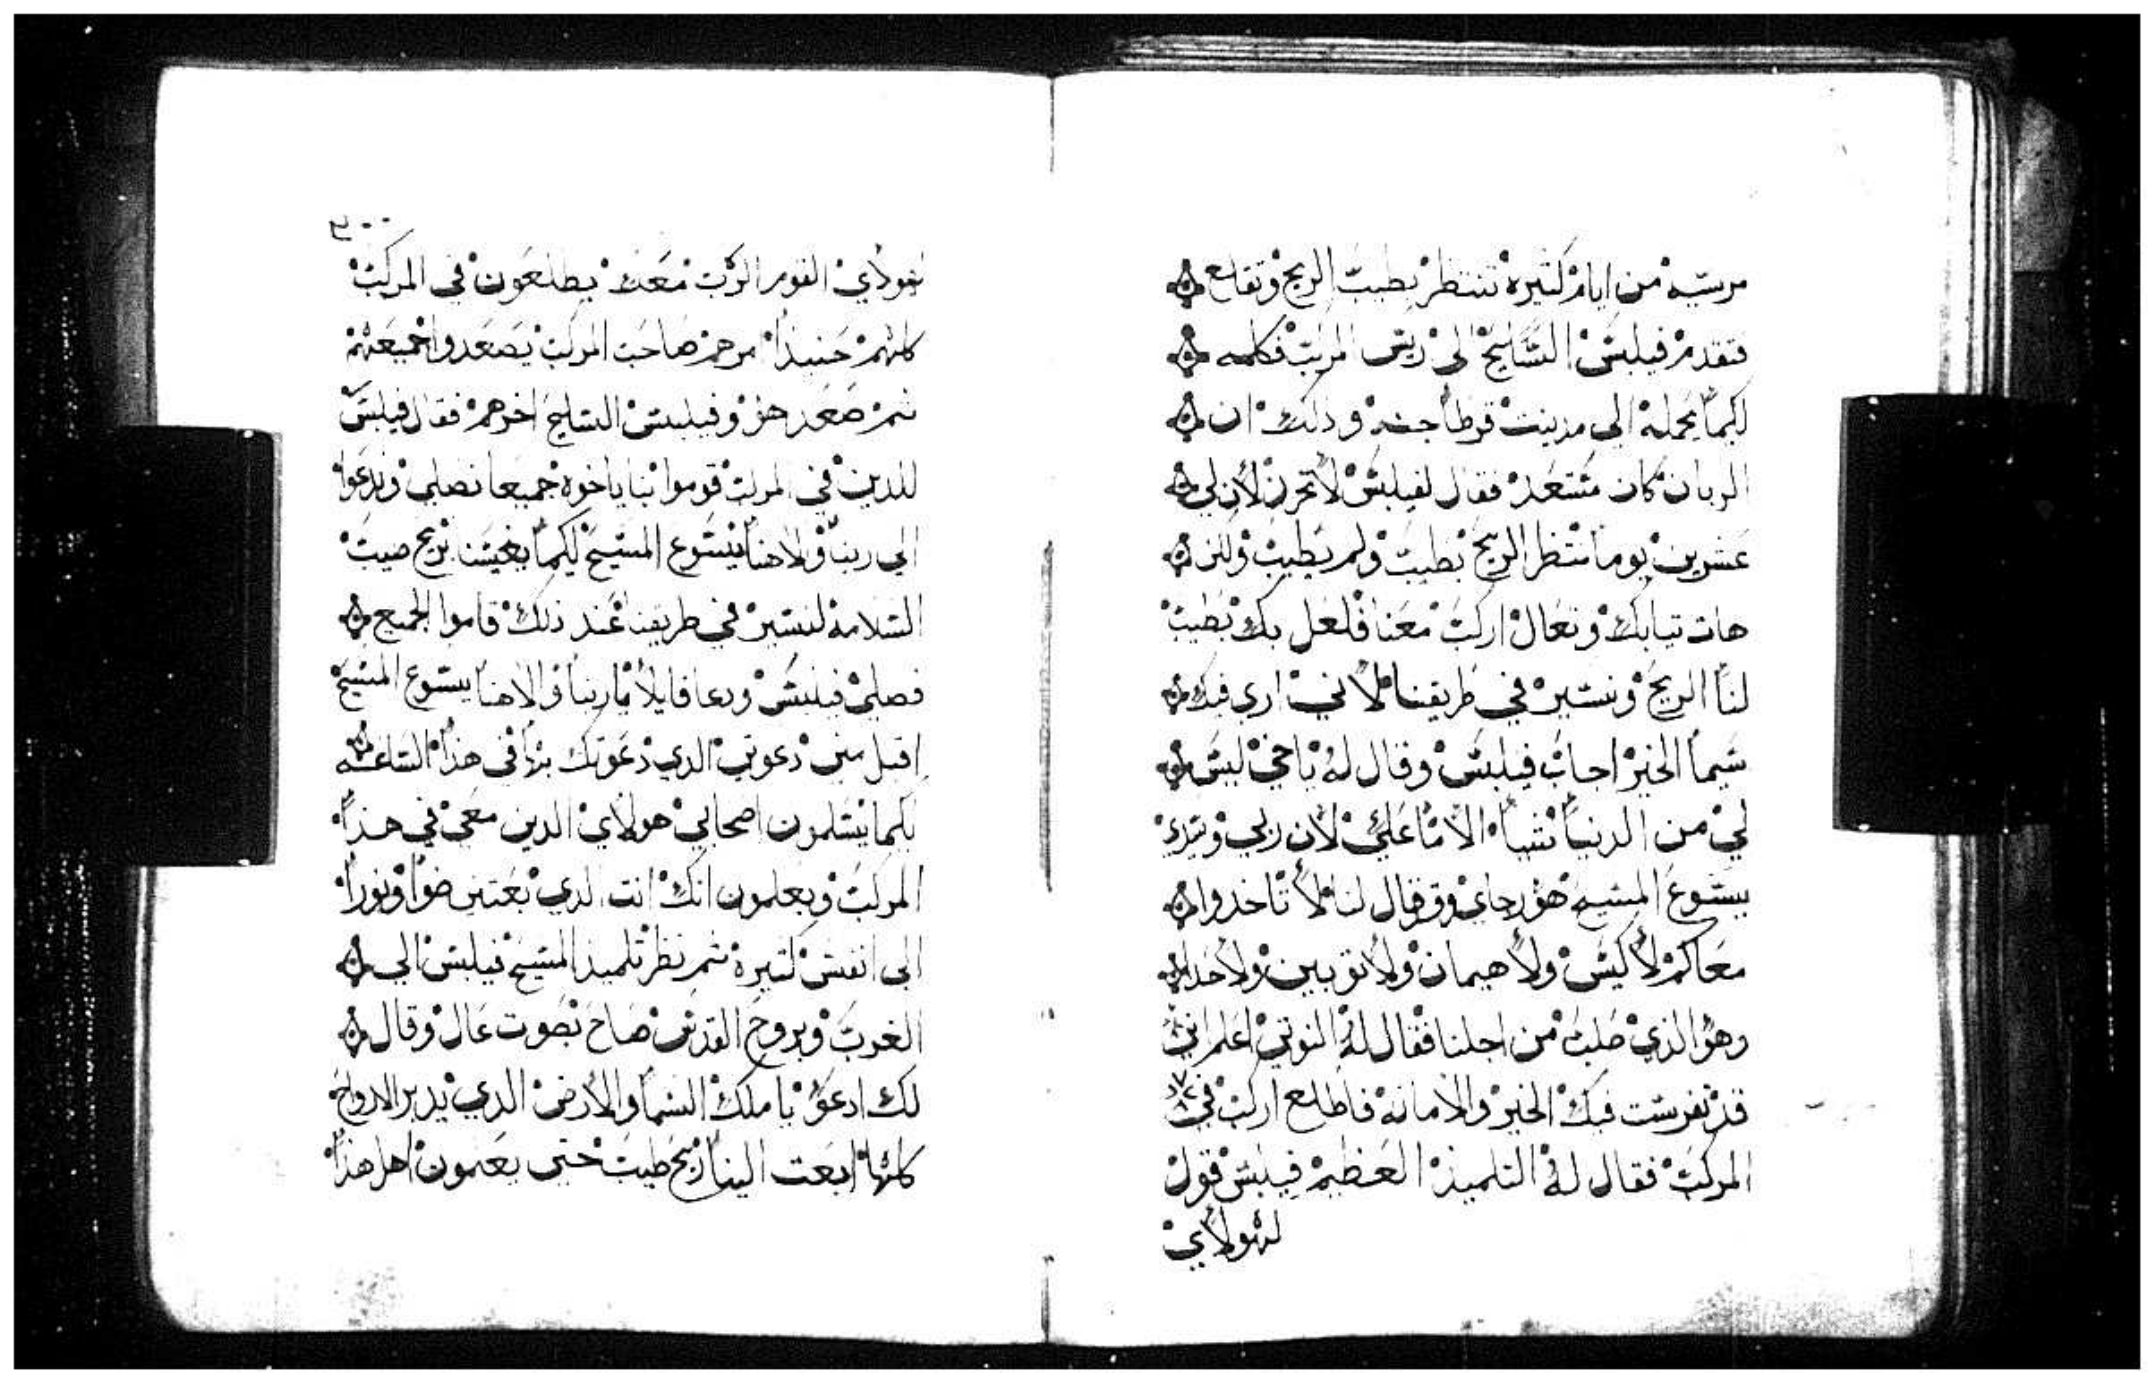 مرسيه من ايام كتيره تنتظر يطيب الريح وتقلع
فتقدم فيلبس السليح الى ريس المركب فكلمه
لكيما يحمله الى مدينت قرطاجنه وذلك ان
الربان كان مستعد فقال لفيلبس لا تحزن لان لي
عشرين يوما انتظر الريح يطيب ولم يطيب ولكن
هات تيابك وتعال اركب معنا فلعل بك يطيب
لنا الريح ونسير في طريقنا لاني ارى فيك
سيما الخير اجاب فيلبس وقال له يا اخي ليس
لي من الدنيا شيا الا ما علي لان ربي وسيدي
يسوع المسيح هو رجاي وقد قال لنا لا تاخدوا
معاكم لا كيس ولا هيمان ولا توبين ولا حدا
وهو الذي صلب من اجلنا فقال له النوتي اعلم اني
قد تفرست فيك الخير والامانه فاطلع اركب في
المركب فقال له التلميذ العظيم فيلبس قول
لهولاي
لهولاي القوم الركب معك يطلعون في المركب
كلهم حينيذا صاحب المركب يصعدوا جميعهم
ثم صعد هو وفيلبس السليح اخرهم فقال فيلبس
للدين في المركب قوموا بنا يا اخوه جميعا نصلي وندعوا
الي ربنا والاهنا يسوع المسيح لكيما يغيتنا بريح طيب
السلامه لنسير في طريقنا عند ذلك قاموا الجميع
فصلى فيلبس ودعا قايلا يا ربنا والاهنا يسوع المسيح
اقبل مني دعوتي الدي دعوتك بها في هذا الساعه
لكيما يسلمون اصحابي هولاي الدين معي في هذا
المركب ويعلمون انك انت الدي بعتني ضوا ونورا
الى انفس كتيره ثم نظر تلميذ المسيح فيلبس الي
الغرب وبروح القدس صاح بصوت عال وقال
لك ادعو يا ملك السما والارض الدي يدبر الارواح
كلها ابعت الينا ريح طيب حتى يعلمون اهل هذا